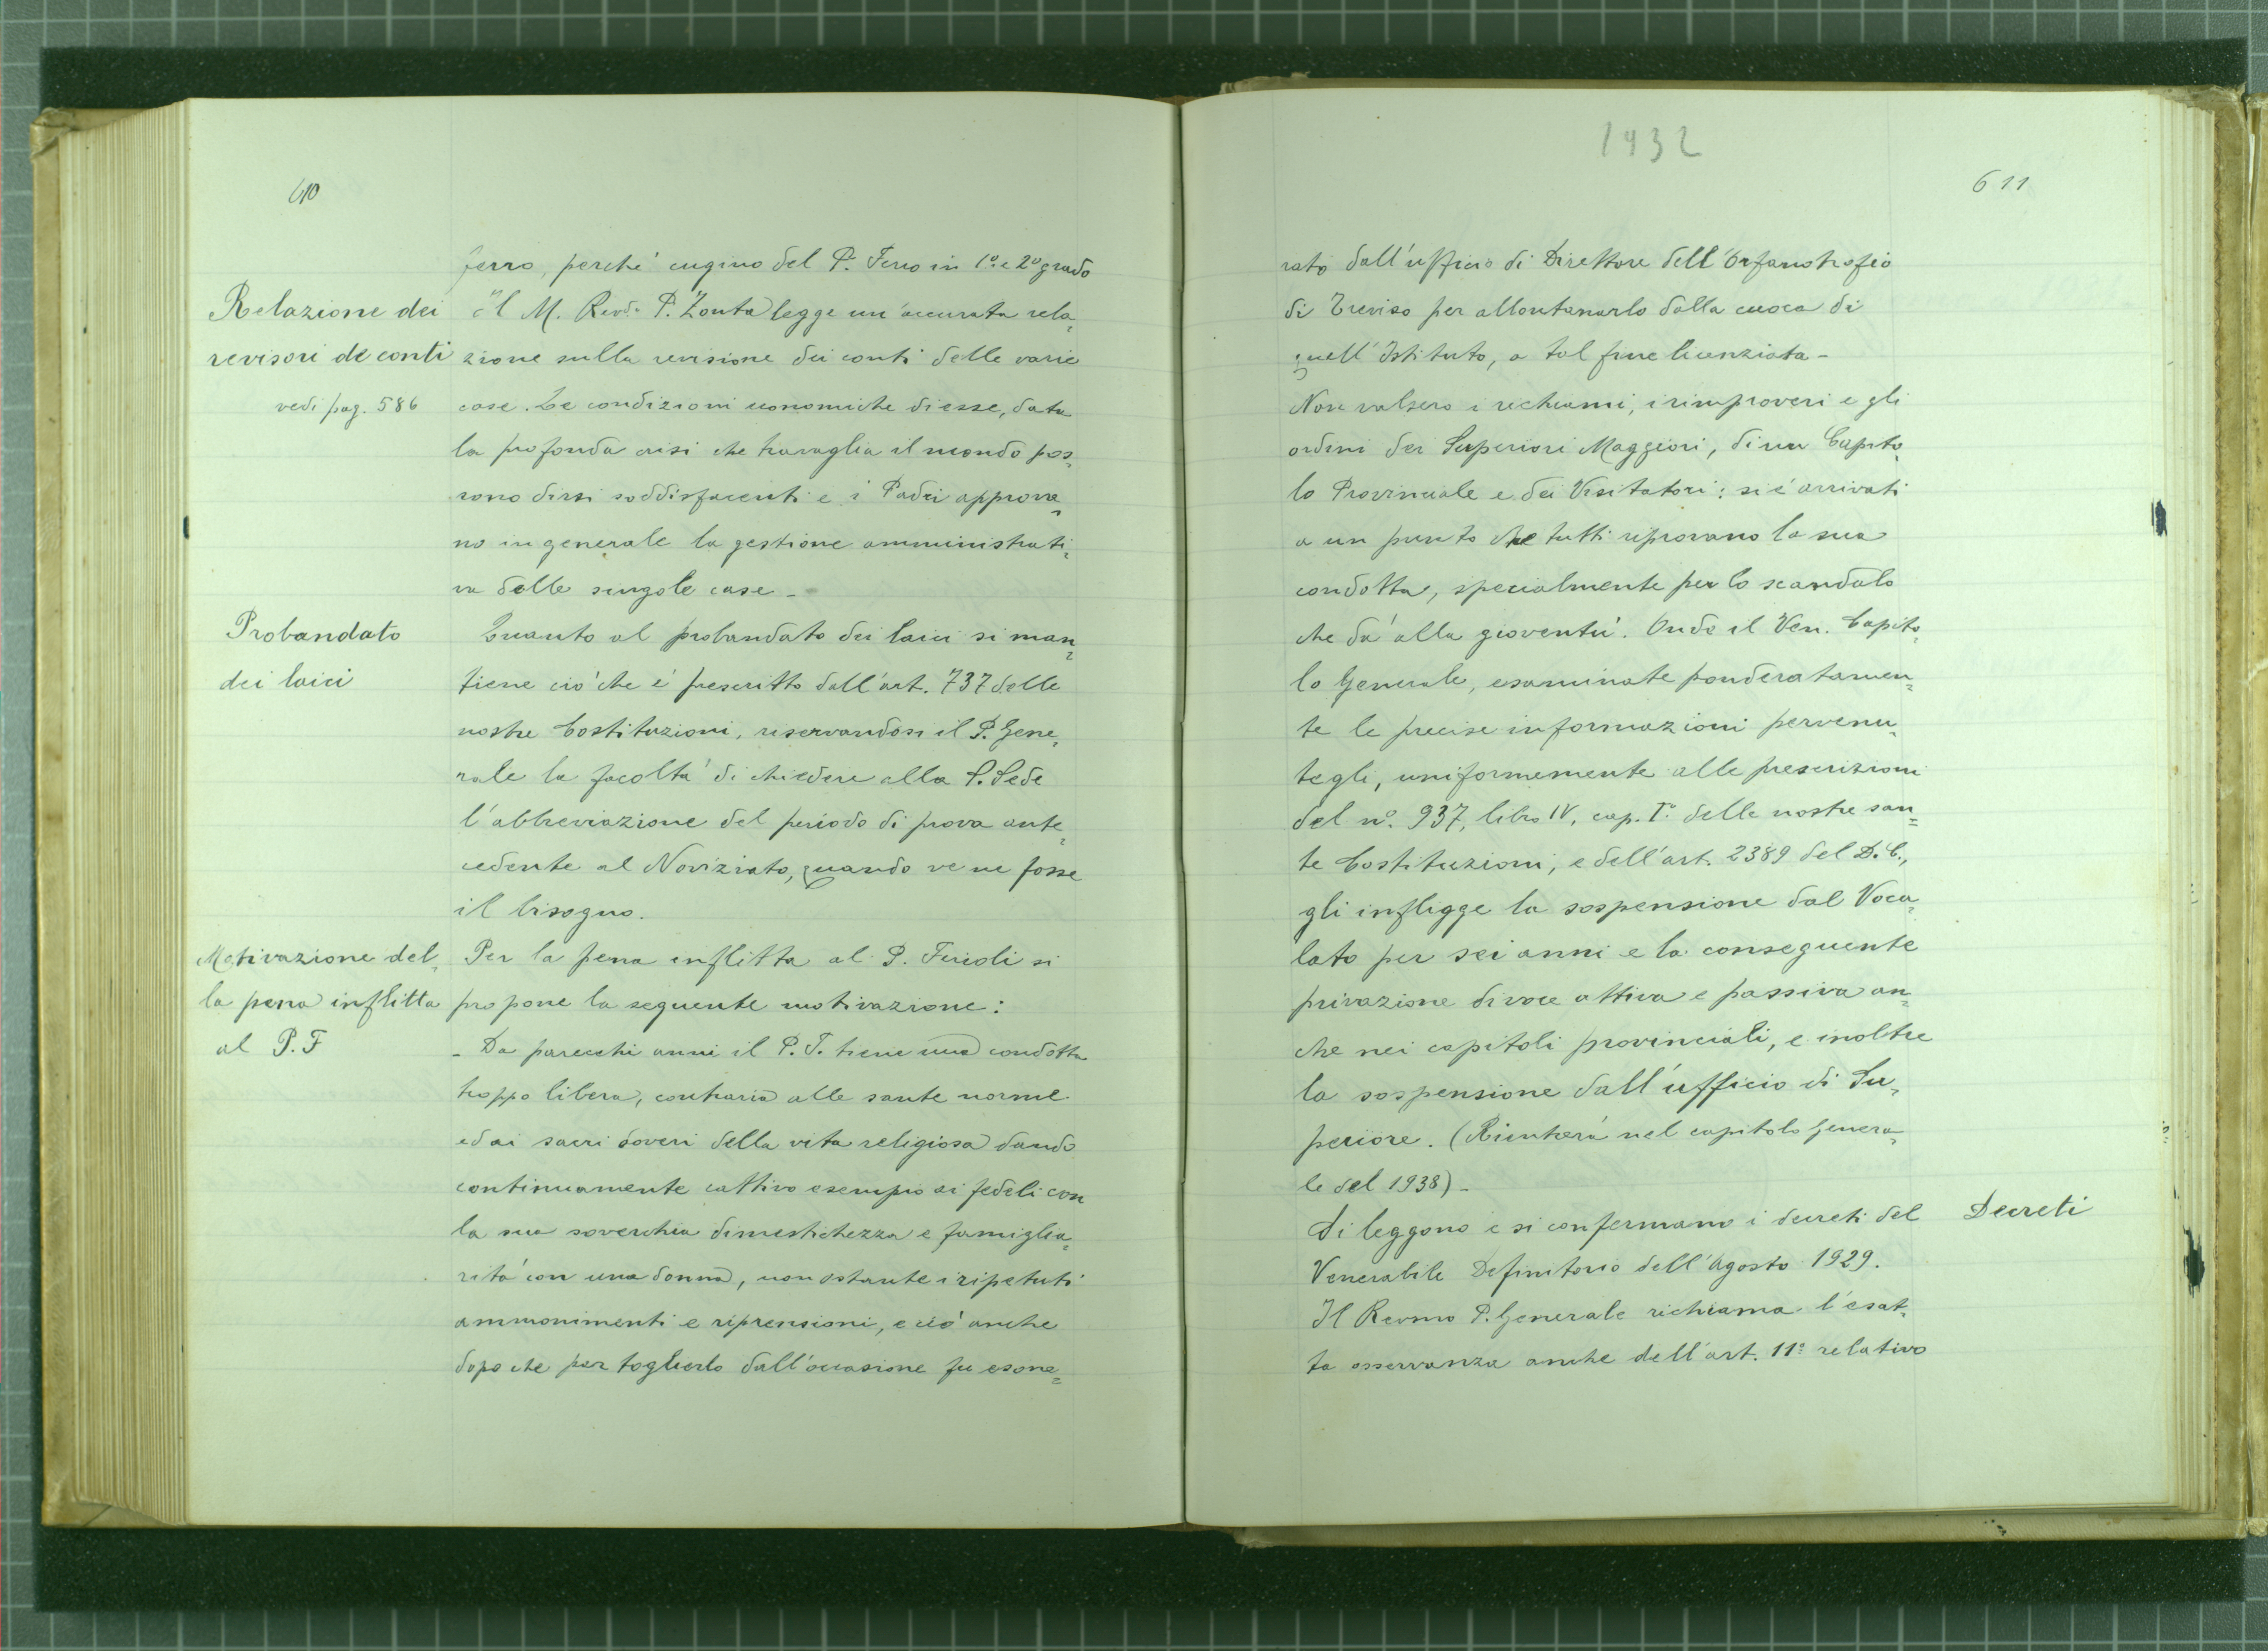 610
ferro, perché cugino del P. Ferro in 1º e 2º grado
Relazione dei
revisori de conti
vedi pag. 586
il M. Revd. P. Zonta legge un'accurata rela=
zione sulla revisione dei conti delle varie
case. Le condizioni economiche di esse, data
la profonda crisi che travaglia il mondo pos=
sono dirsi soddisfacenti e i Padri approva=
no in generale la gestione amministrati=
va delle singole case -
Probandato
dei laici
Quanto al probandato dei laici si man=
tiene ciò che è prescritto dall'art. 737 delle
nostre Costituzioni, riservandosi il P. Gene=
rale la facoltà di chiedere alla S. Sede
l'abbreviazione del periodo di prova ante=
cedente al Noviziato, quando ve ne fosse
il bisogno.
Motivazione del=
la pena inflitta
al P. F
Per la pena inflitta al P. Ferioli si
propone la seguente motivazione:
- Da parecchi anni il P. F. tiene una condotta
troppo libera, contraria alle sante norme
ed ai sacri doveri della vita religiosa dando
continuamente cattivo esempio ai fedeli con
la sua soverchia dimestichezza e famiglia=
rità con una donna, non ostante i ripetuti
ammonimenti e riprensioni, e ciò anche
dopo che per toglierlo dall'occasione fu esone=
1932
611
rato dall'ufficio di Direttore dell'Orfanotrofio
di Treviso per allontanarlo dalla cuoca di
quell'Istituto, a tal fine licenziata -
Non valsero i richiami, i rimproveri e gli
ordini dei Superiori Maggiori, di un Capito=
lo Provinciale e dei Visitatori: si è arrivati
a un punto che tutti riprovano la sua
condotta, specialmente per lo scandalo
che dà alla gioventù. Onde il Ven. Capito=
lo Generale, esaminate ponderatamen=
te le precise informazioni pervenu=
tegli, uniformemente alle prescrizioni
del nº. 937, libro IV, cap. Iº delle nostre san=
te Costituzioni, e dell'art. 2389 del D. C.,
gli infligge la sospensione dal Voca=
lato per sei anni e la conseguente
privazione di voce attiva e passiva an=
che nei capitoli provinciali, e inoltre
la sospensione dall'ufficio di Su=
periore. (Rientrerà nel capitolo Genera=
le del 1938) -
Decreti
Si leggono e si confermano i decreti del
Venerabile Definitorio dell'Agosto 1929.
Il Revmo P. Generale richiama l'esat=
ta osservanza anche dell'art. 11º relativo